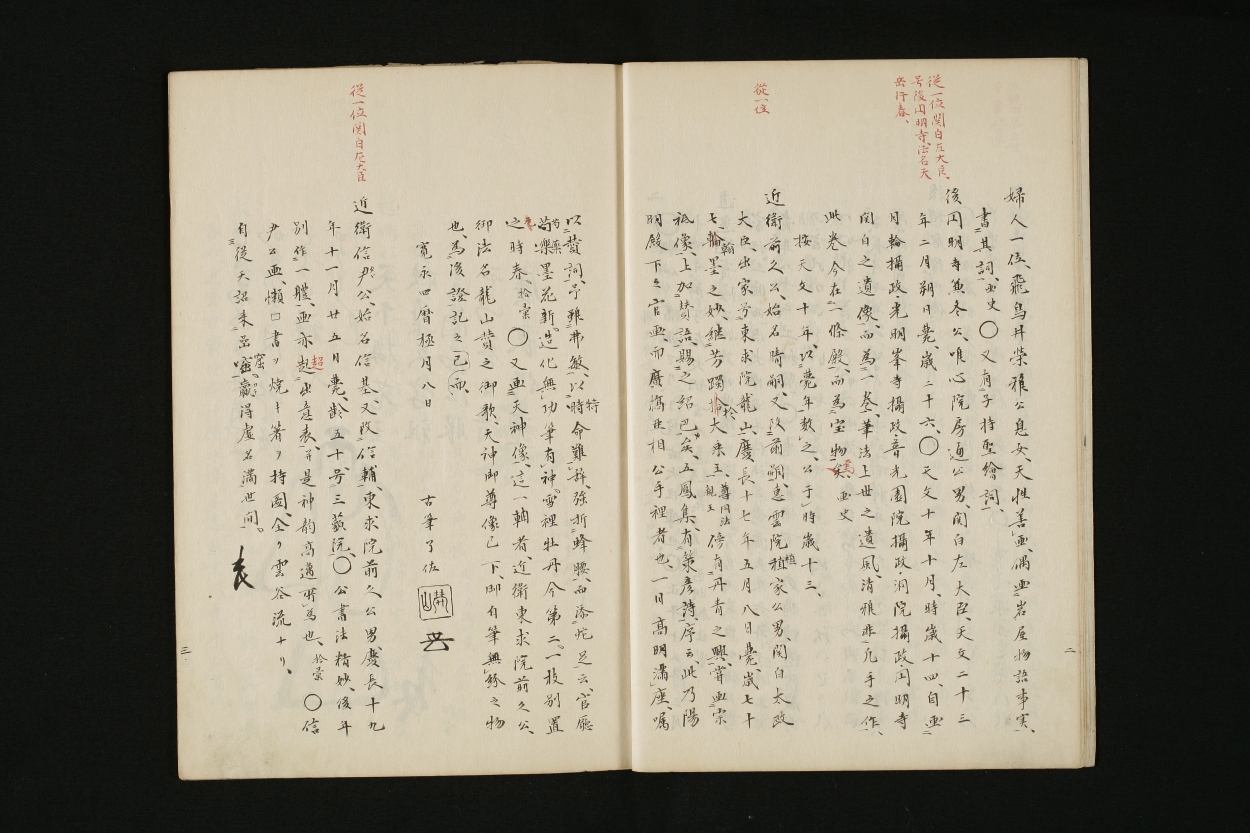 従一位関白左大臣、
号後円明寺、法名天
岳行春、
婦人一位、飛鳥井栄雅公息女、天性善画、偶画岩屋物語事実、
書其詞、画史〇又有子持聖絵詞、
後円明寺兼冬公、唯心院房通公男、関白左大臣、天文二十三
年二月朔日薨、歳二十六、〇天文十年十月、時歳十四、自画
月輪摂政・光明峯寺摂政・普光園院摂政・洞院摂政・円明寺
関白之遺像、而為一巻、筆法上世之遺風、清雅非凡手之作、
此巻今在一條殿、而為宝物矣、画史
按天文十年、以薨年数之、公于時歳十三、
従一位
近衛前久公、始名晴嗣、又改前嗣、恵雲院稙家公男、関白太政
大臣、出家号東求院龍山、慶長十七年五月八日薨、歳七十
七、翰墨之妙、継芳躅於大乗王、尊円法親王傍有丹青之興、嘗画宗
祗像、上加賛語、賜之紹巴矣、五鳳集有策彦詩、序云、此乃陽
明殿下之官画、而廣橋亜相公手裡者也、一日高明満座、嘱
二
以賛詞、予雖弗敏、以時命難辞、強折蜂腰、而添蛇足云、官庁
芍薬墨花新、造化無功筆有神、雪裡牡丹今第二、一枝別置
之時春、翰林〇又画天神像、這一軸者、近衛東求院前久公、
御法名龍山賛之御歌、天神御尊像已下、御自筆無余之物
也、為後證記之已而、
寛永四暦極月八日
古筆了佐
従一位関白左大臣
近衛信尹公、始名信基、又改信輔、東求院前久公男、慶長十九
年十一月廿五日薨、齢五十、号三藐院、〇公書法精妙、後年
別作一体、画亦超出意表、并是神韵高邁所為也、〇信
尹公画、懶
自従天詔来
嬴得虚名満世間。
三